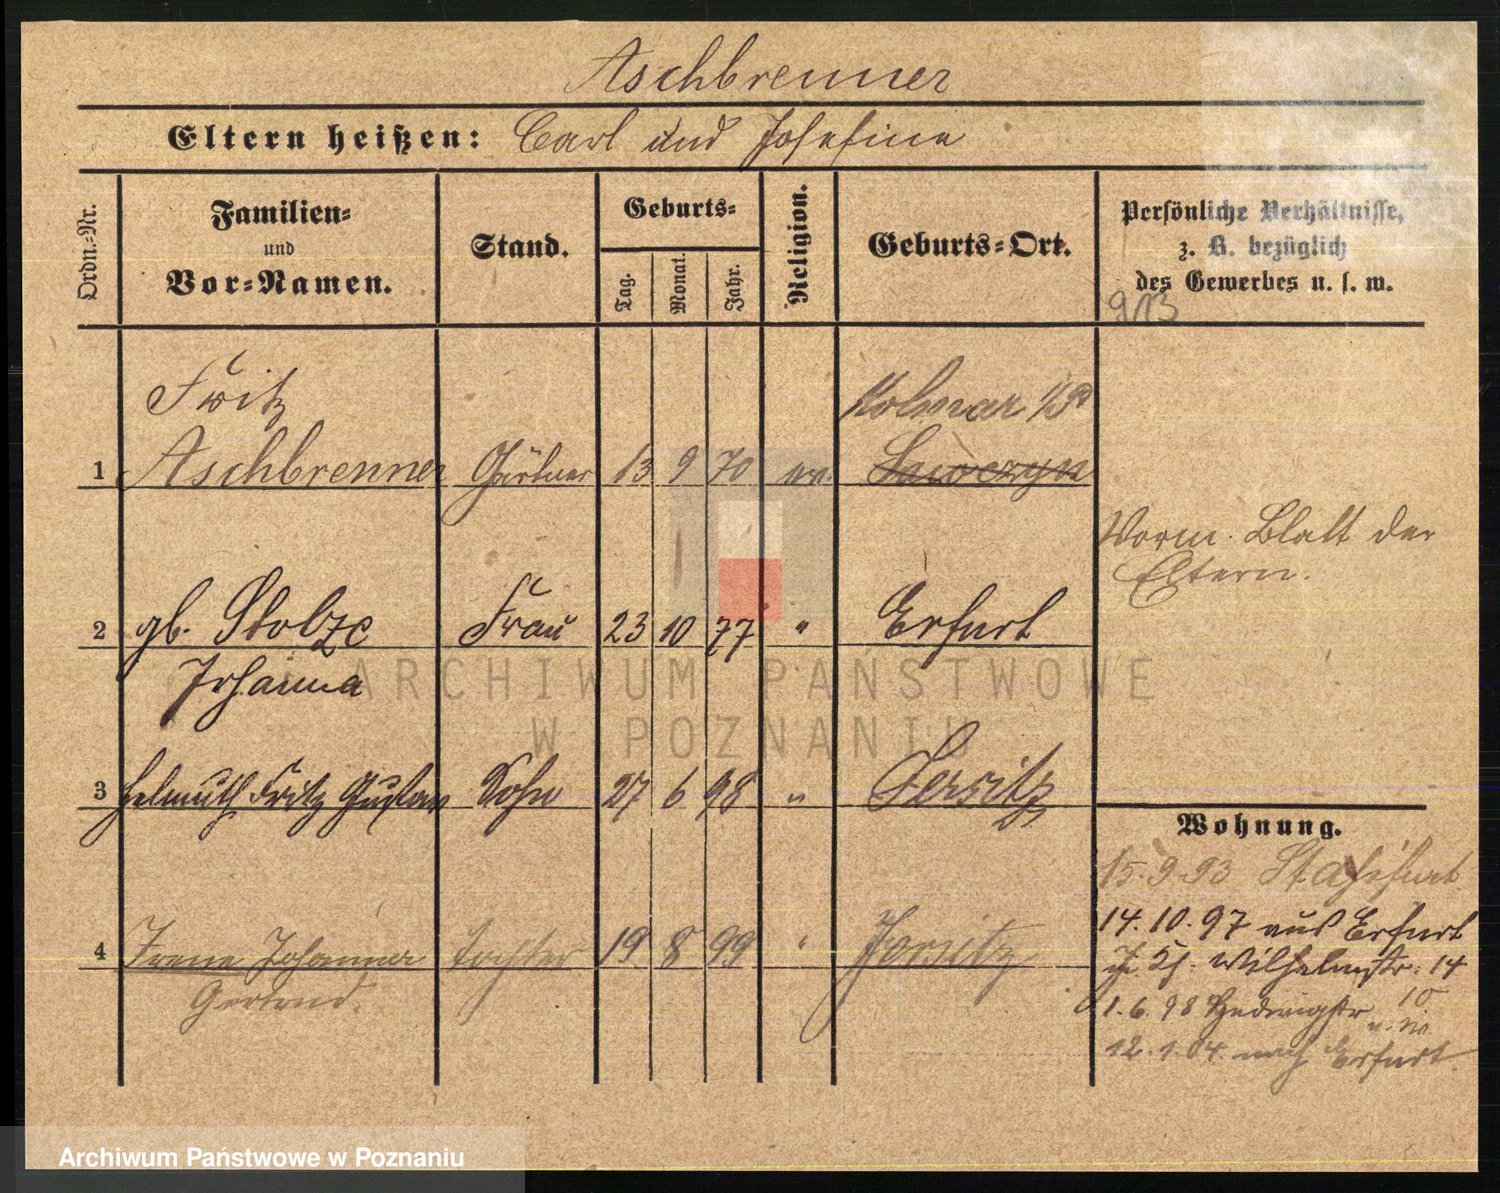 Aschbrenner
Eltern heißen: Carl und Josefine
Ordn.-Nr.
Familien-
und
Vor-Namen.
Stand.
Geburts-
Tag.
Monat.
Jahr.
Religion.
Geburts-Ort.
Persönliche Verhältnisse,
z. B. bezüglich
des Gewerbes u. s. w.
913
Fritz
Kolmar
1 Aschbrenner Gärtner 13 9 70 ev.
Vorm. Blatt der
Eltern.
2 gb. Stolze Frau 23 10 77 " Erfurt
Johanna
3 Helmuth Fritz Gustav Sohn 27 6 98 " Jersitz
4 Irene Johanna Tochter 19 8 99 " Jersitz
Gertrud.
Wohnung.
15.9.93 Staßfurt
14.10.97 aus Erfurt
Wilhelmstr. 14
1.6.98 Hedwigstr 10
12.1.04. nach Erfurt.
ARCHIWUM PAŃSTWOWE
W POZNANIU
Archiwum Państwowe w Poznaniu